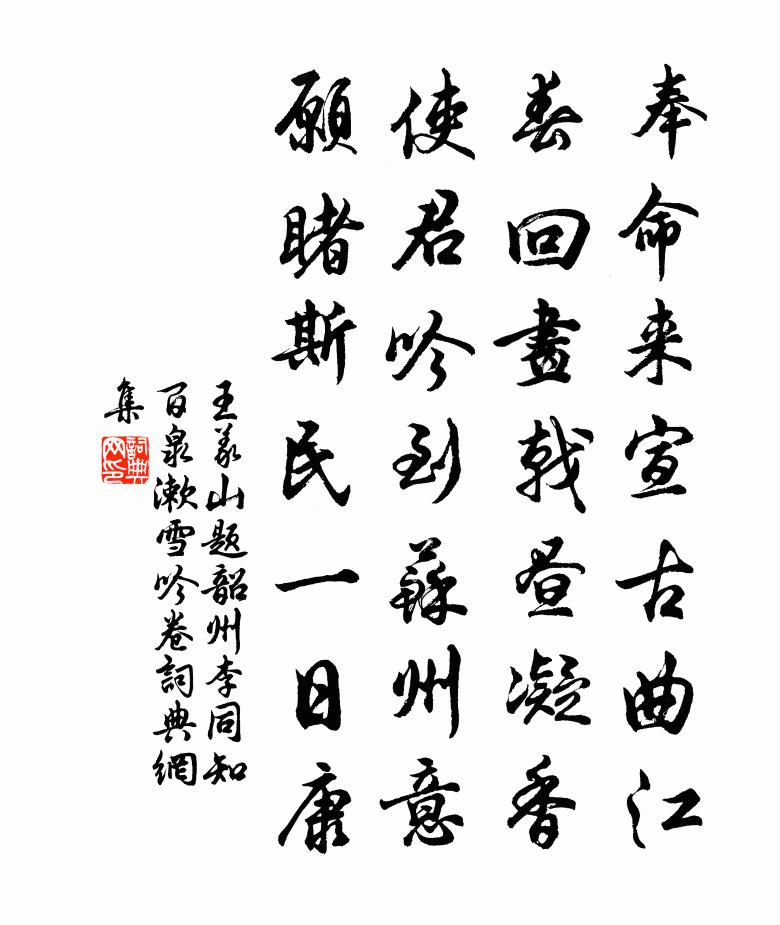 奉命来宣古曲江
春回畫戟昼凝香
使君吟到蘇州意
願睹斯民一日康
王義山题韶州李同知
百泉漱雪吟卷詞典網
集
詞典网印